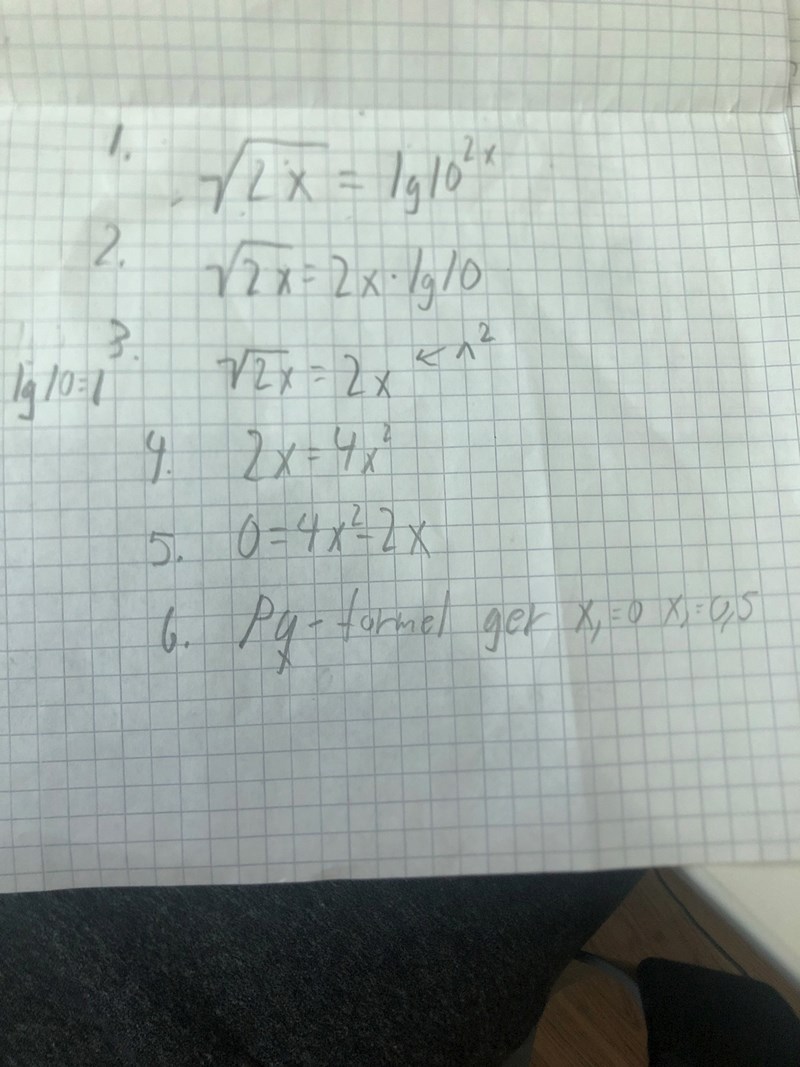 1. √2x = lg10^2x
2. √2x = 2x · lg10
lg10=1 3. √2x = 2x ← ^2
4. 2x = 4x²
5. 0 = 4x² - 2x
6. Pq - formel ger x₁=0 x₁=0,5